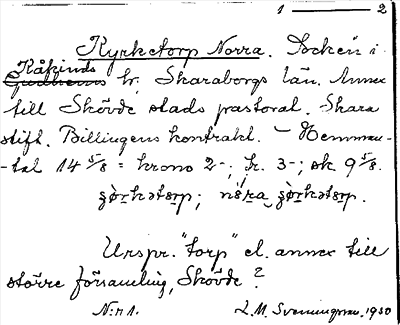 1 — 2
Kyrketorp Norra. Socken i
Kåkinds
Gudhems hr. Skaraborgs län. Annex
till Skövde stads pastorat. Skara
stift. Billingens kontrakt. – Hemman-
-tal 14 5/8 = krono 2-; fr. 3-; sk 9 5/8.
Urspr. "torp" el. annex till
större församling, Skövde?
N:r 1. L. M. Svenungsson. 1930